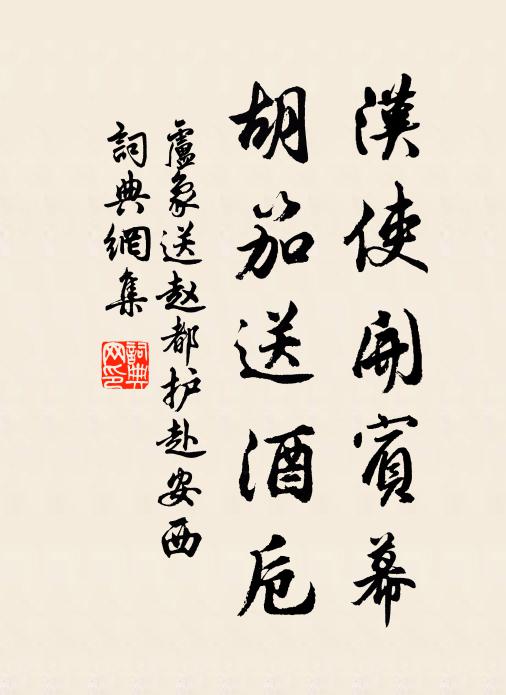 漢使開賓幕
胡笳送酒卮
盧象送赵都护赴安西
詞典網集
詞典
网印